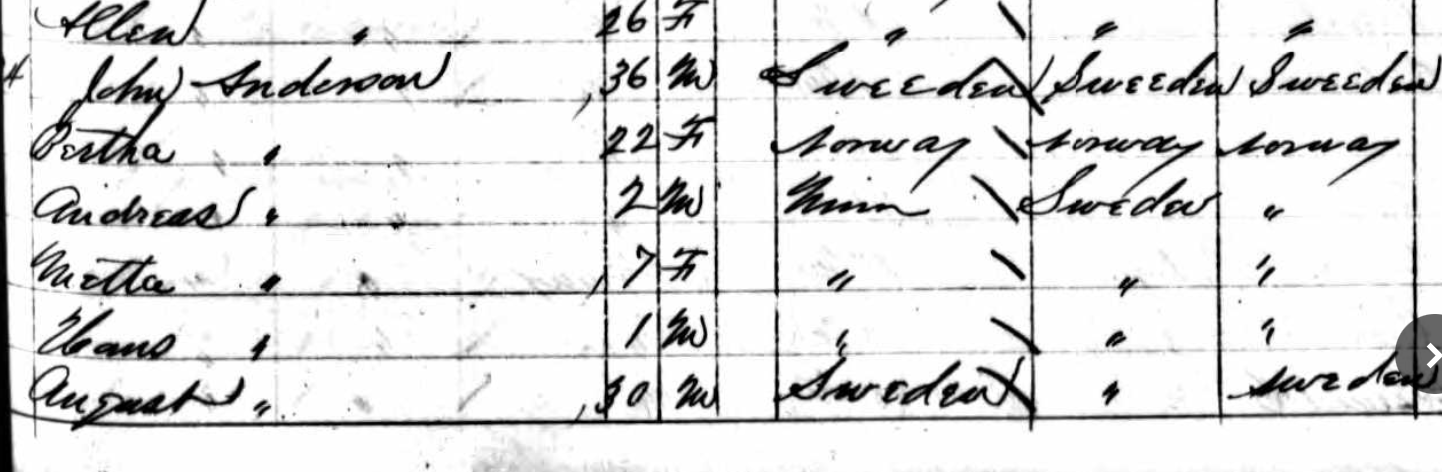 Allen " 26 F " \ " "
4 John Anderson 36 M Sweeden \ Sweeden Sweeden
Bertha " 22 F Norway \ Norway Norway
Andreas " 2 M Minn \ Sweden "
Metta " 7 F " \ " "
Hans " 1 M " \ " "
August " 30 M Sweden \ " Sweden